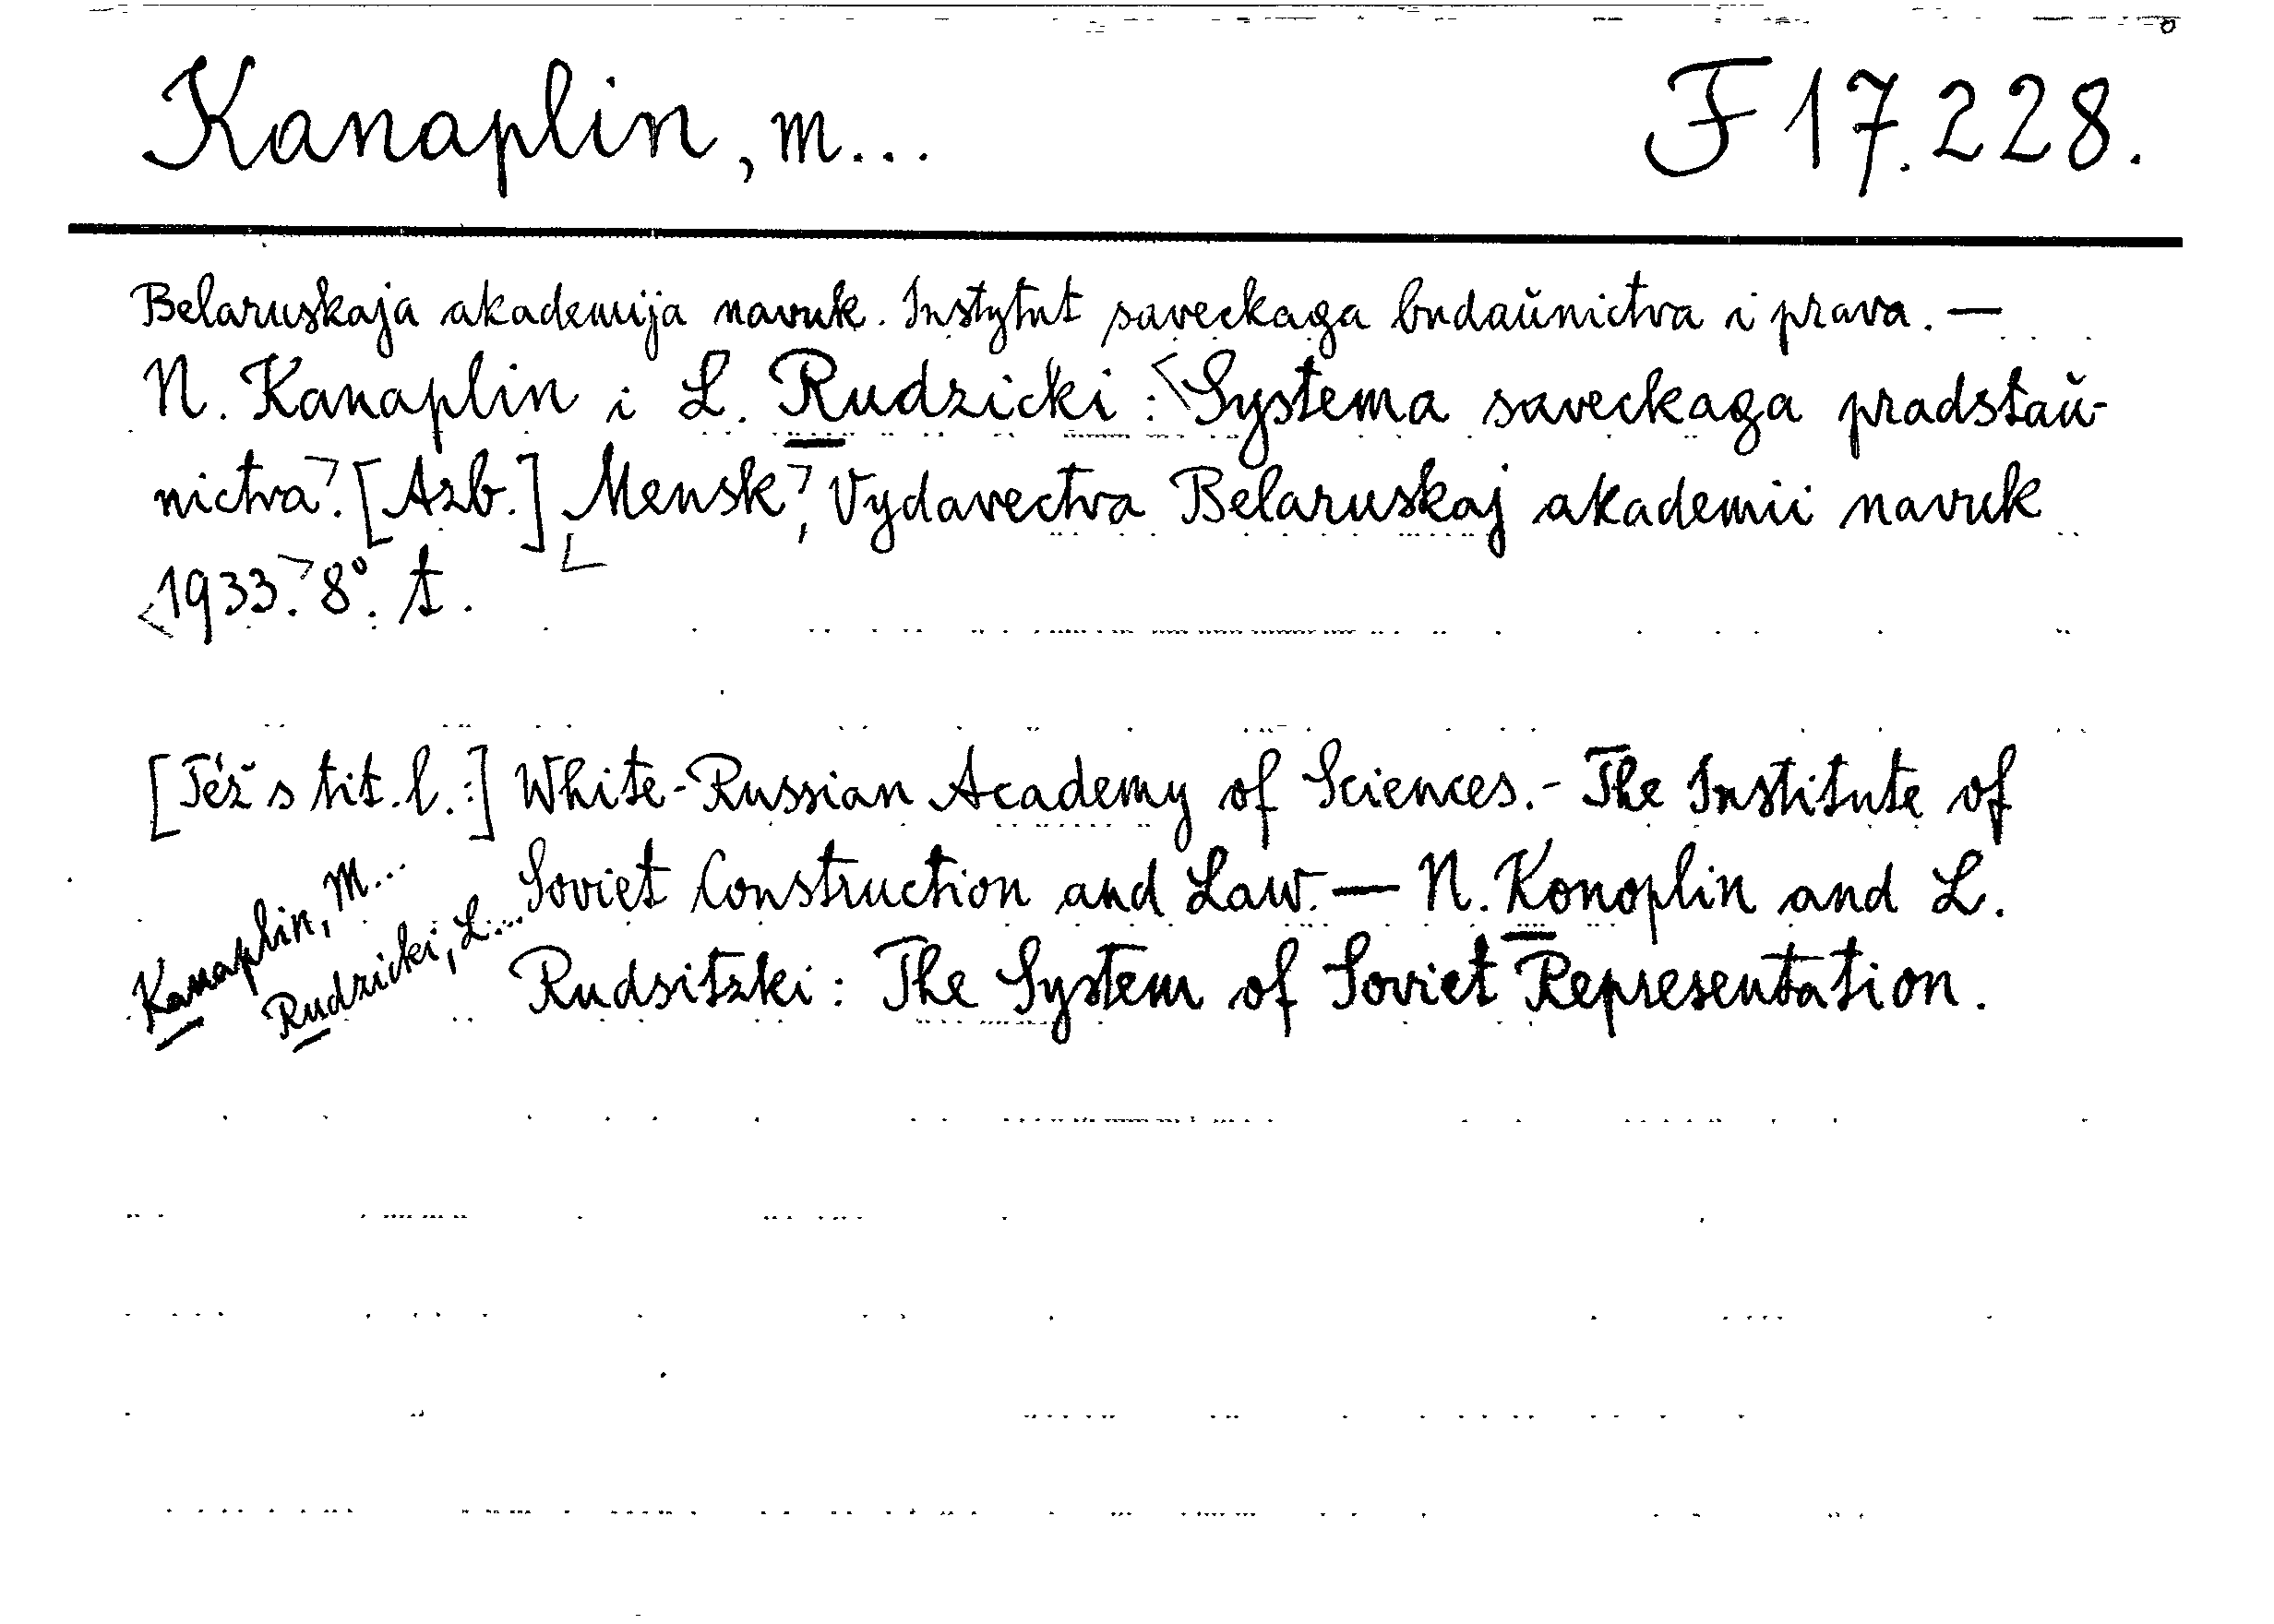 Kanaplin, M... F 17.228.
Belaruskaja akademija navuk. Instytut saveckaga budaŭnictva i prava. —
N. Kanaplin i L. Rudzicki: <Systema saveckaga pradstaŭ-
nictva>. [Azb.] <Mensk>, Vydavectva Belaruskaj akademii navuk
<1933>. 8°. t.
[Též s tit. l.:] White-Russian Academy of Sciences.- The Institute of
Soviet Construction and Law. — N. Konoplin and L.
Rudsitzki: The System of Soviet Representation.
Kanaplin, M...
Rudzicki, L....